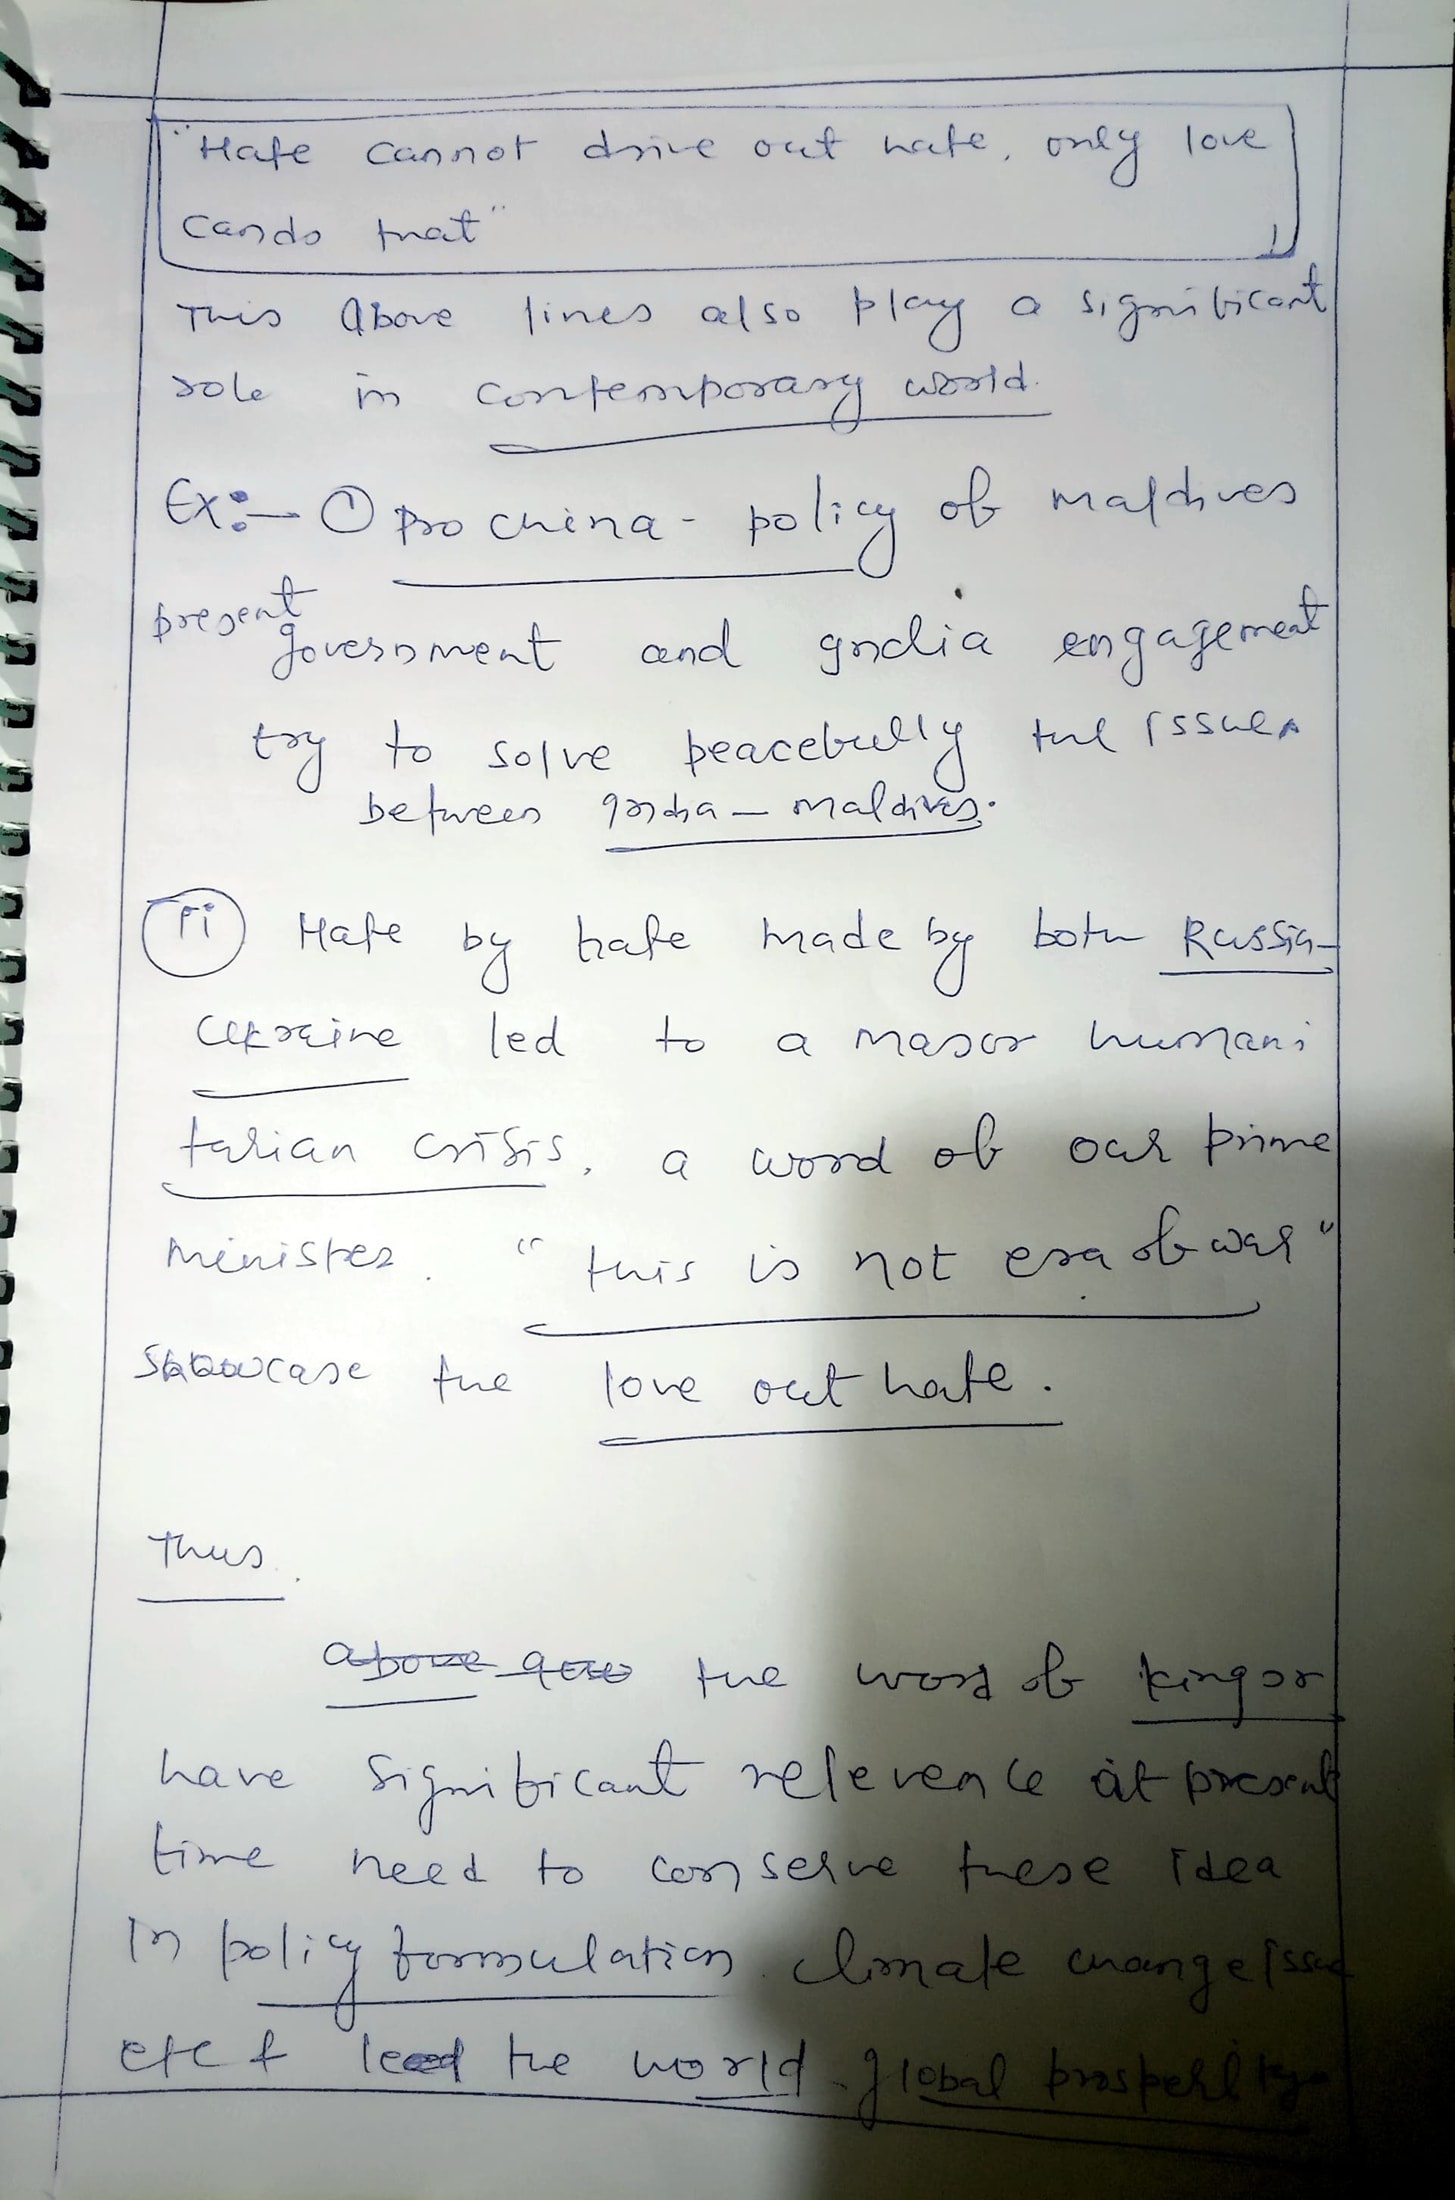 "Hate cannot drive out hate, only love
can do that"
This Above lines also play a significant
role in contemporary world.
Ex:- ① pro china - policy of maldives
present government and India engagement
try to solve peacefully the issue
between India - maldives.
ii Hate by hate made by both Russia-
Ukraine led to a major humani
tarian crisis, a word of our prime
minister. "this is not era of war"
showcase the love out hate.
Thus.
above the word of king jr
have significant relevence at present
time need to conserve these idea
In policy formulation. climate change issue
etc & lead the world global prosperity.